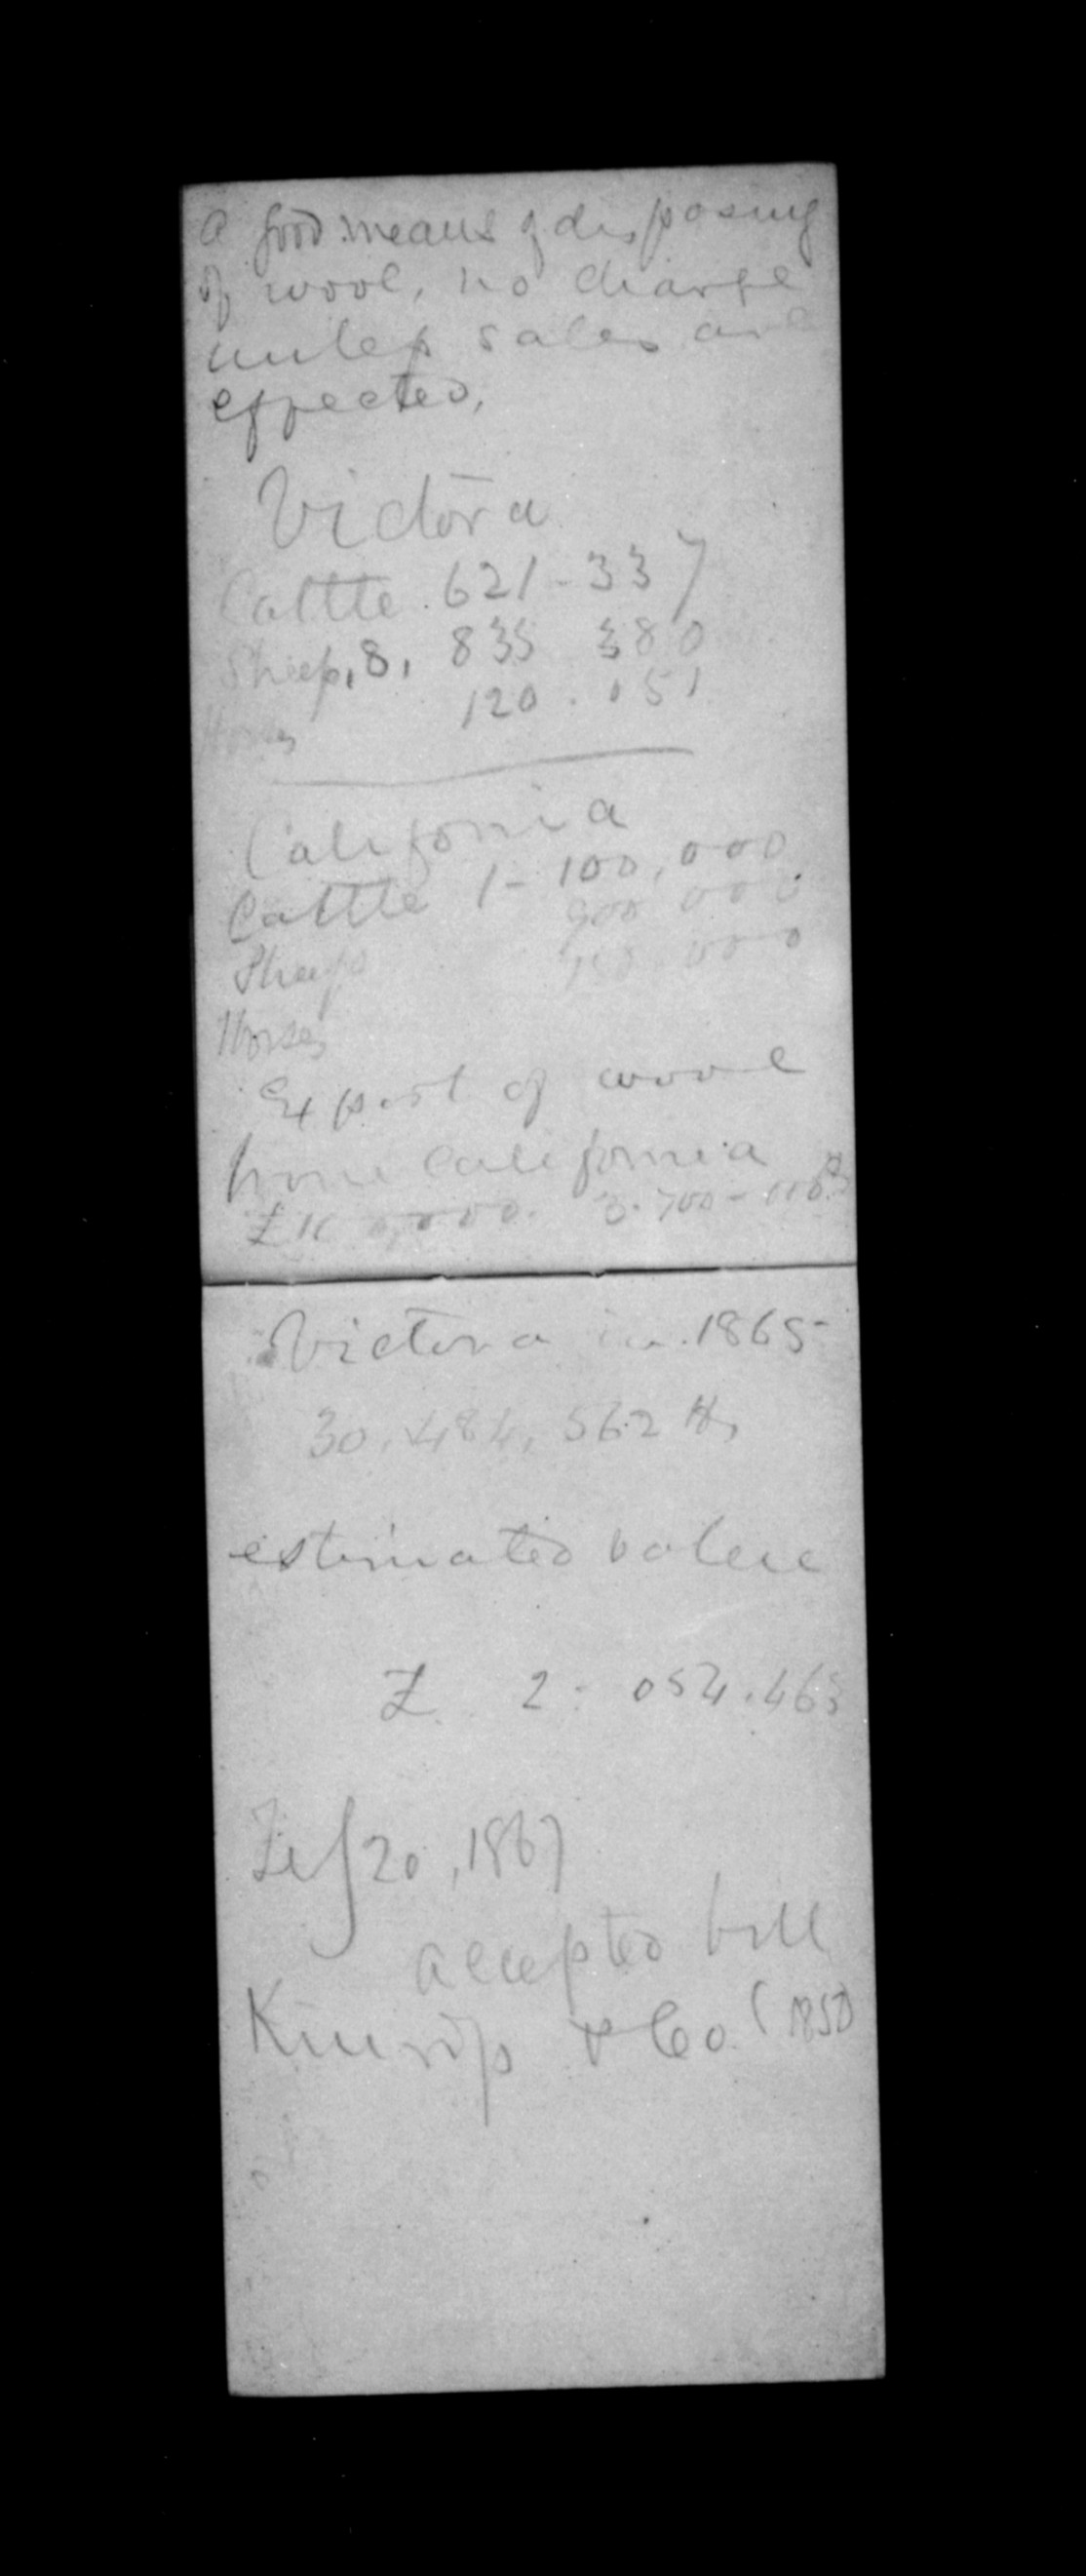 a good means of disposing
of wool, no charge
unless sales are
effected,
Victoria
Cattle. 621-337
Sheep, 8, 835 380
Horses 120.051
California
Cattle 1-100,000
Sheep 900 000
Horses 000
Export of wool
from California
3.700-000 lbs
Victoria in 1865-
30,484,562 lbs
estimated value
£ 2: 054.465
20, 1867
accepted bill
& Co (1850